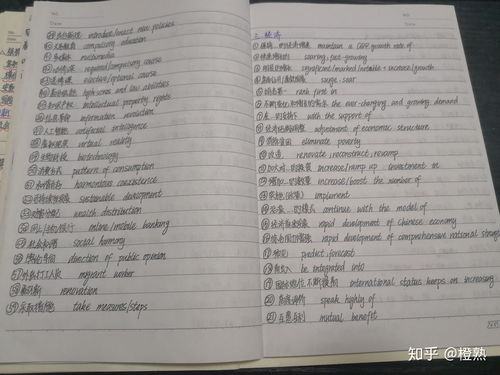 introduce/enact new policies
compulsory education
multimedia
required/compulsory course
elective/optional course
high-scores and low abilities
知识产权 intellectual property rights
information revolution
人工智能 artificial intelligence
虚拟现实 virtual reality
生物科技 biotechnology
消费方式 pattern of consumption
和谐共存 harmonious coexistence
可持续发展 sustainable development
财富分配 wealth distribution
网上/手机银行 online/mobile banking
社会和谐 social harmony
舆论导向 direction of public opinion
外来打工人员 migrant worker
renovation
采取措施 take measures/steps
三、经济
maintain a GDP growth rate of
快速增长的 soaring, fast-growing
significant/marked/notable + increase/growth
surge, soar
rank first in
the ever-changing and growing demand
在…的支持下 with the support of
经济结构调整 adjustment of economic structure
消除贫困 eliminate poverty
改造 renovate, reconstruct, revamp
加大对…的投资 increase/ramp up investment in
增加…的数量 increase/boost the number of
实施(政策) implement
continue with the model of
rapid development of Chinese economy
rapid development of comprehensive national strength
预见 predict, forecast
be integrated into
国际地位不断提高 international status keeps on increasing
高度评价 speak highly of
互惠互利 mutual benefit
知乎 @橙熟